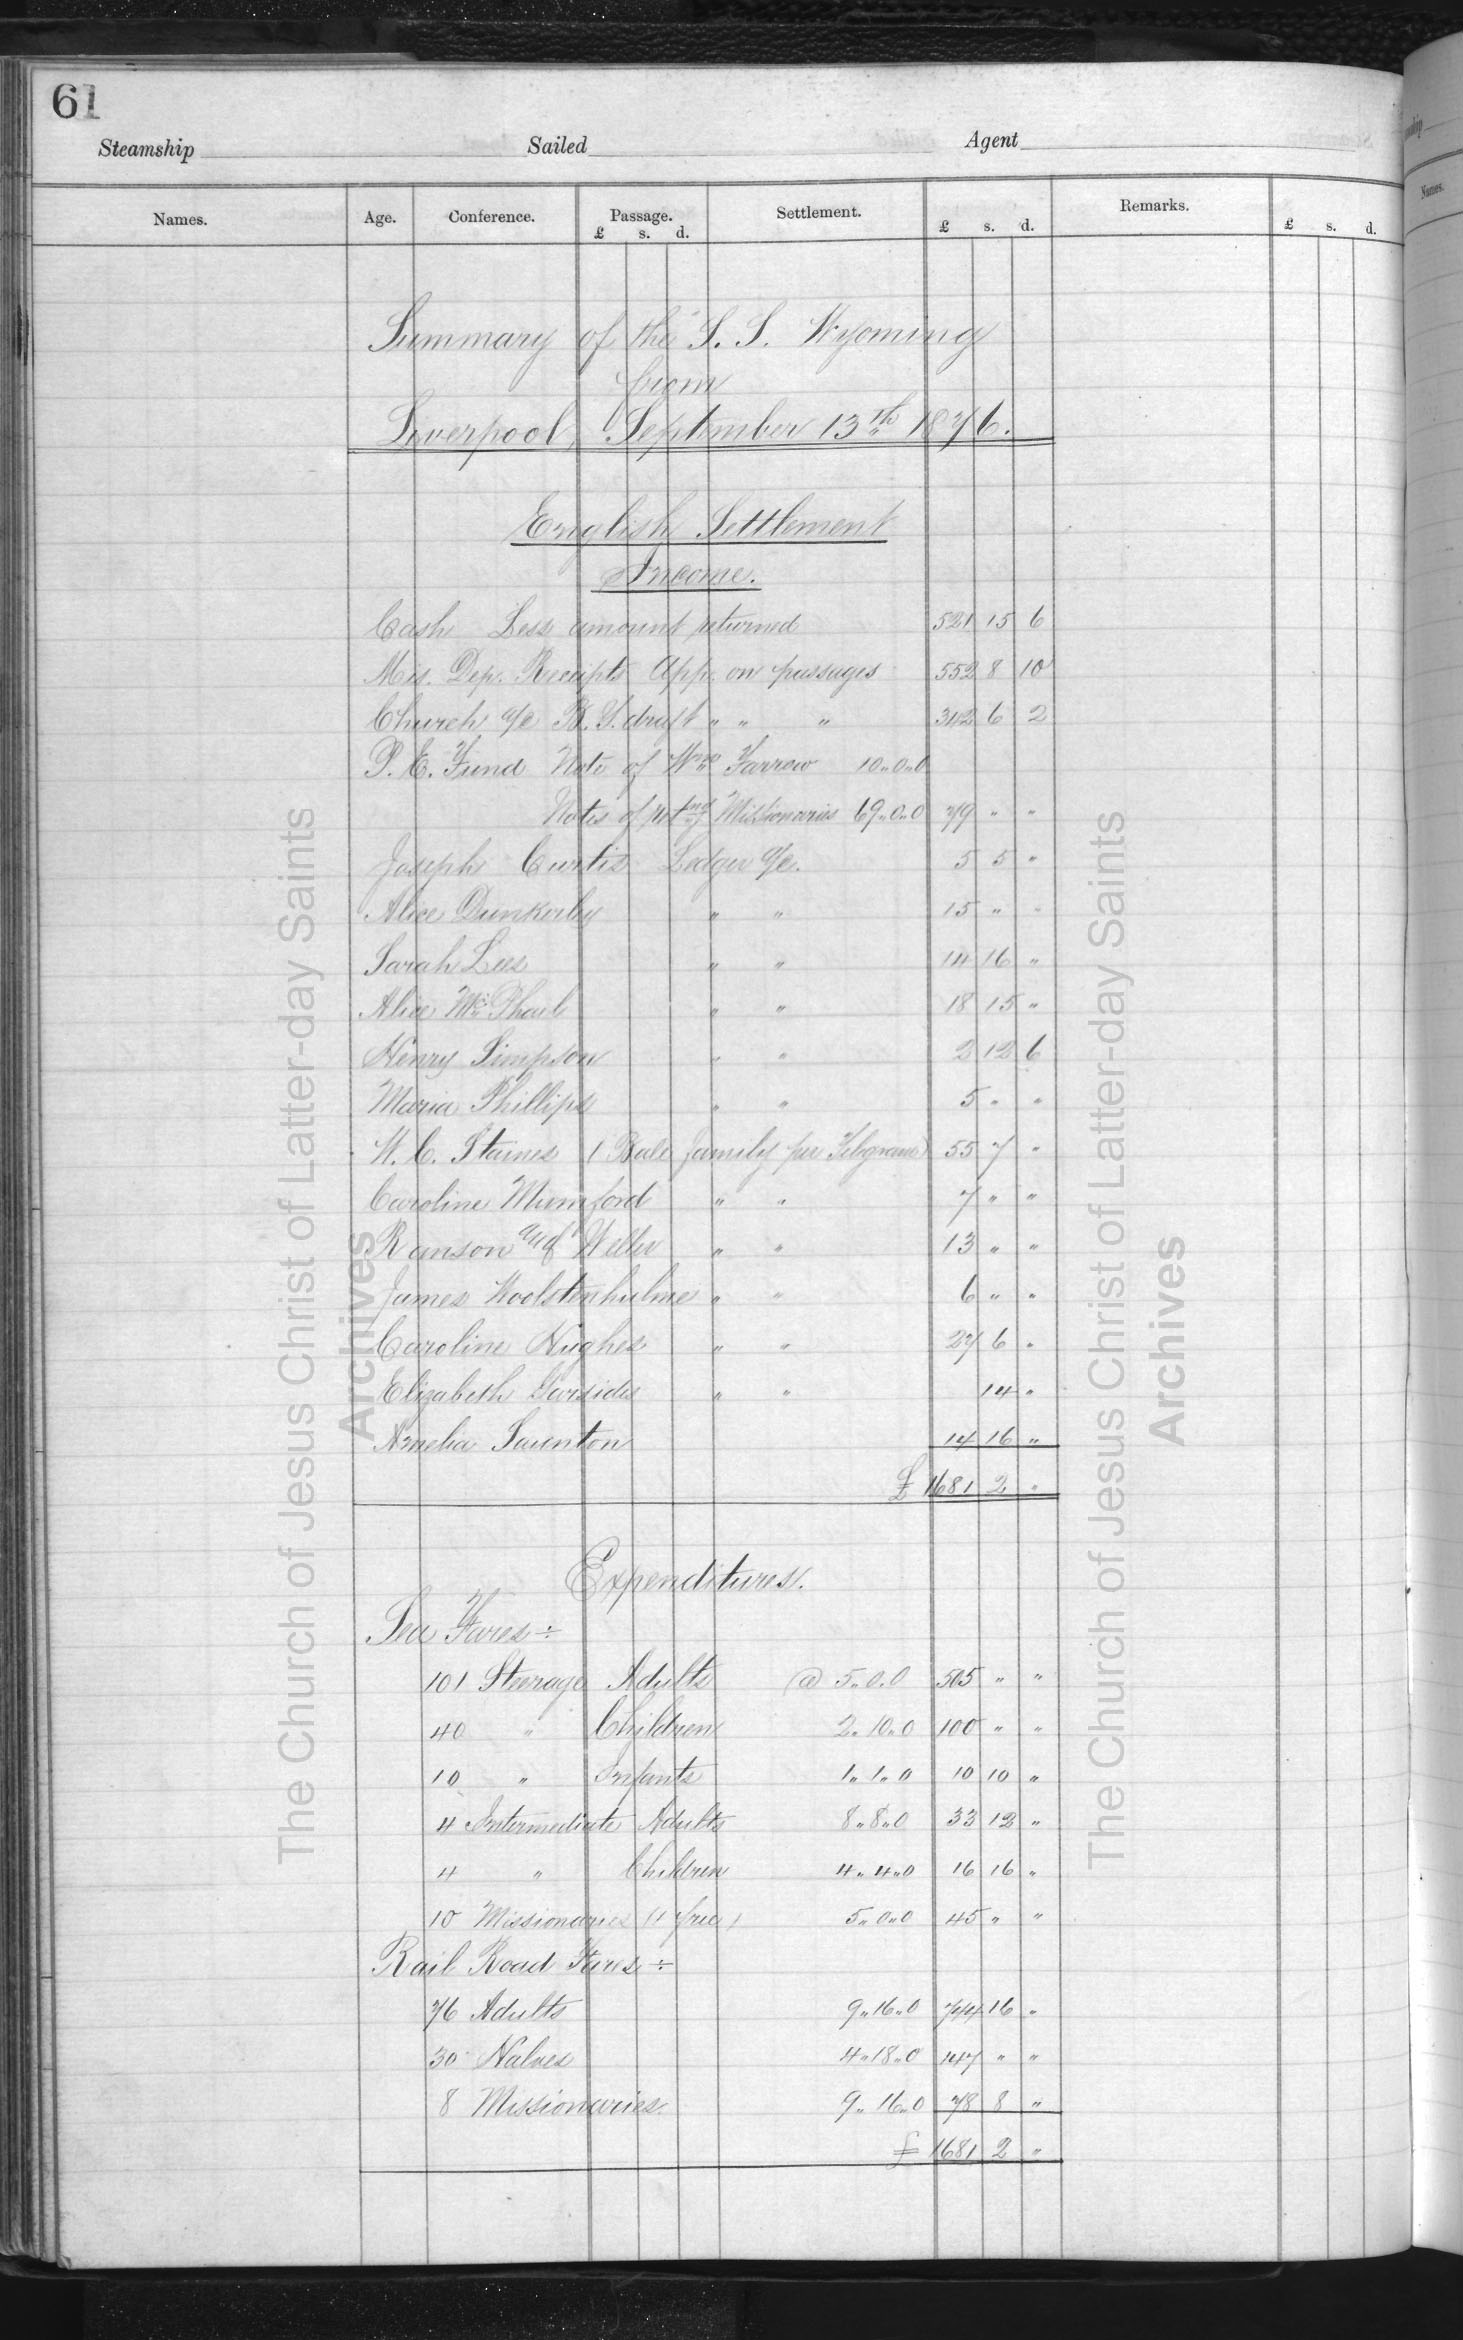 61
Steamship Sailed Agent
Names. Age. Conference. Passage. Settlement. Remarks.
£ s. d. £ s. d. £ s. d.
Summary of the S. S. Wyoming
from
Liverpool, September 13th 1876.
English Settlement
Income.
Cash Less amount returned 521 15 6
Mis. Dep. Receipts App. on passages 552 8 10
Church a/c B. Y. draft " " " 342 6 2
P. E. Fund Note of Wm Farrow 10"0"0
Notes of retng Missionaries 69"0"0 79 " "
Joseph Curtis Ledger a/c. 5 5 "
Alice Dunkerley " " 15 " "
Sarah Lees " " 14 16 "
Alice Mc Phail " " 18 15 "
Henry Simpson " " 2 12 6
Maria Phillips " " 5 " "
W. C. Staines (Bale family per Telegram) 55 7 "
Caroline Mumford " " 7 " "
Ranson Weller " " 13 " "
James Woolstenhulme " " 6 " "
Caroline Hughes " " 27 6 "
Elizabeth Garside " " 14 "
Amelia Taunton 14 16 "
£ 1681 2 "
Expenditures.
Sea Fares ÷
101 Steerage Adults @ 5"0.0 505 " "
40 " Children 2"10"0 100 " "
10 " Infants 1"1"0 10 10 "
4 Intermediate Adults 8"8"0 33 12 "
4 " Children 4"4"0 16 16 "
10 Missionaries (1 free) 5"0"0 45 " "
Rail Road Fares ÷
76 Adults 9"16"0 744 16 "
30 Halves 4"18"0 147 " "
8 Missionaries. 9"16"0 78 8 "
£ 1681 2 "
The Church of Jesus Christ of Latter-day Saints
Archives
The Church of Jesus Christ of Latter-day Saints
Archives
Names.